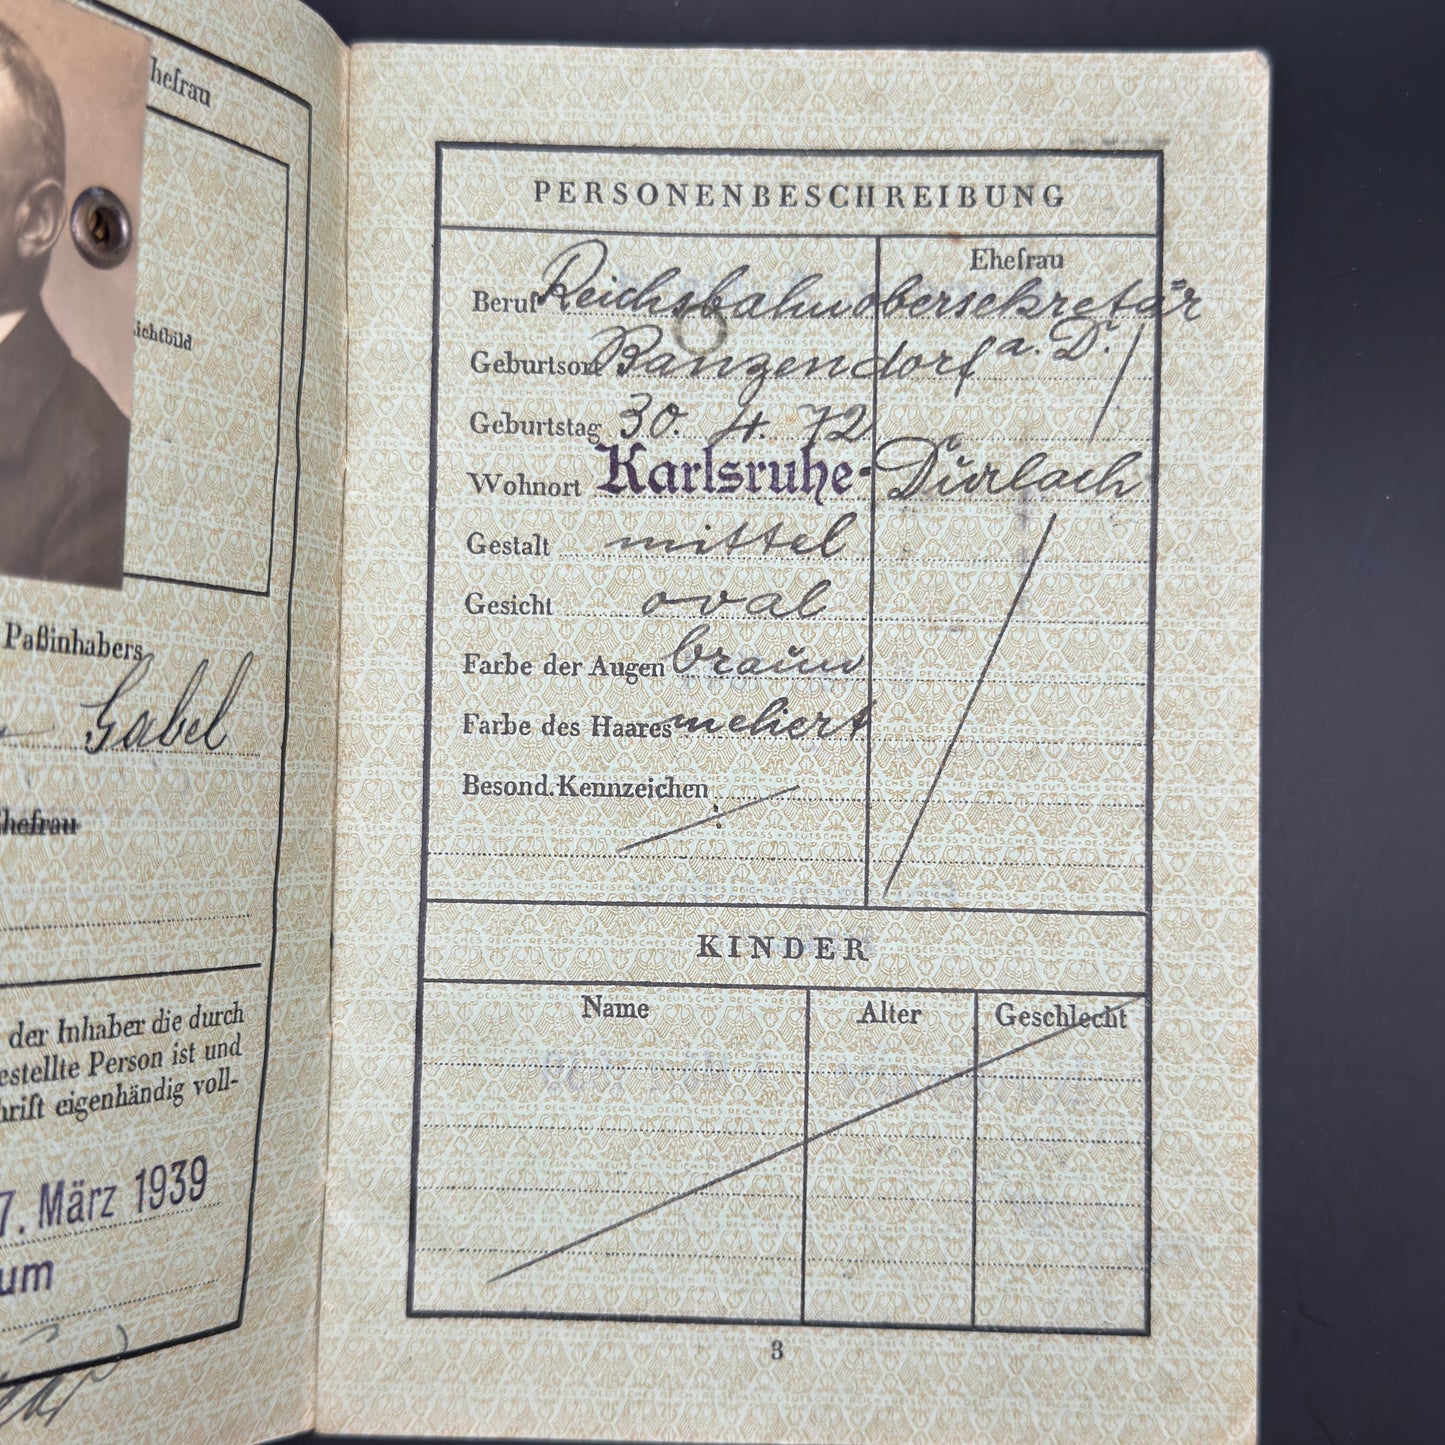 hefrau
ichtbild
Paßinhabers
Gabel
hefrau
der Inhaber die durch
estellte Person ist und
hrift eigenhändig voll-
7. März 1939
um
PERSONENBESCHREIBUNG
Ehefrau
Beruf Reichsbahnobersekretär
a. D.
Geburtsort Banzendorf
Geburtstag 30. 4. 72
Wohnort Karlsruhe-Durlach
Gestalt mittel
Gesicht oval
Farbe der Augen braun
Farbe des Haares meliert
Besond. Kennzeichen
KINDER
Name Alter Geschlecht
3